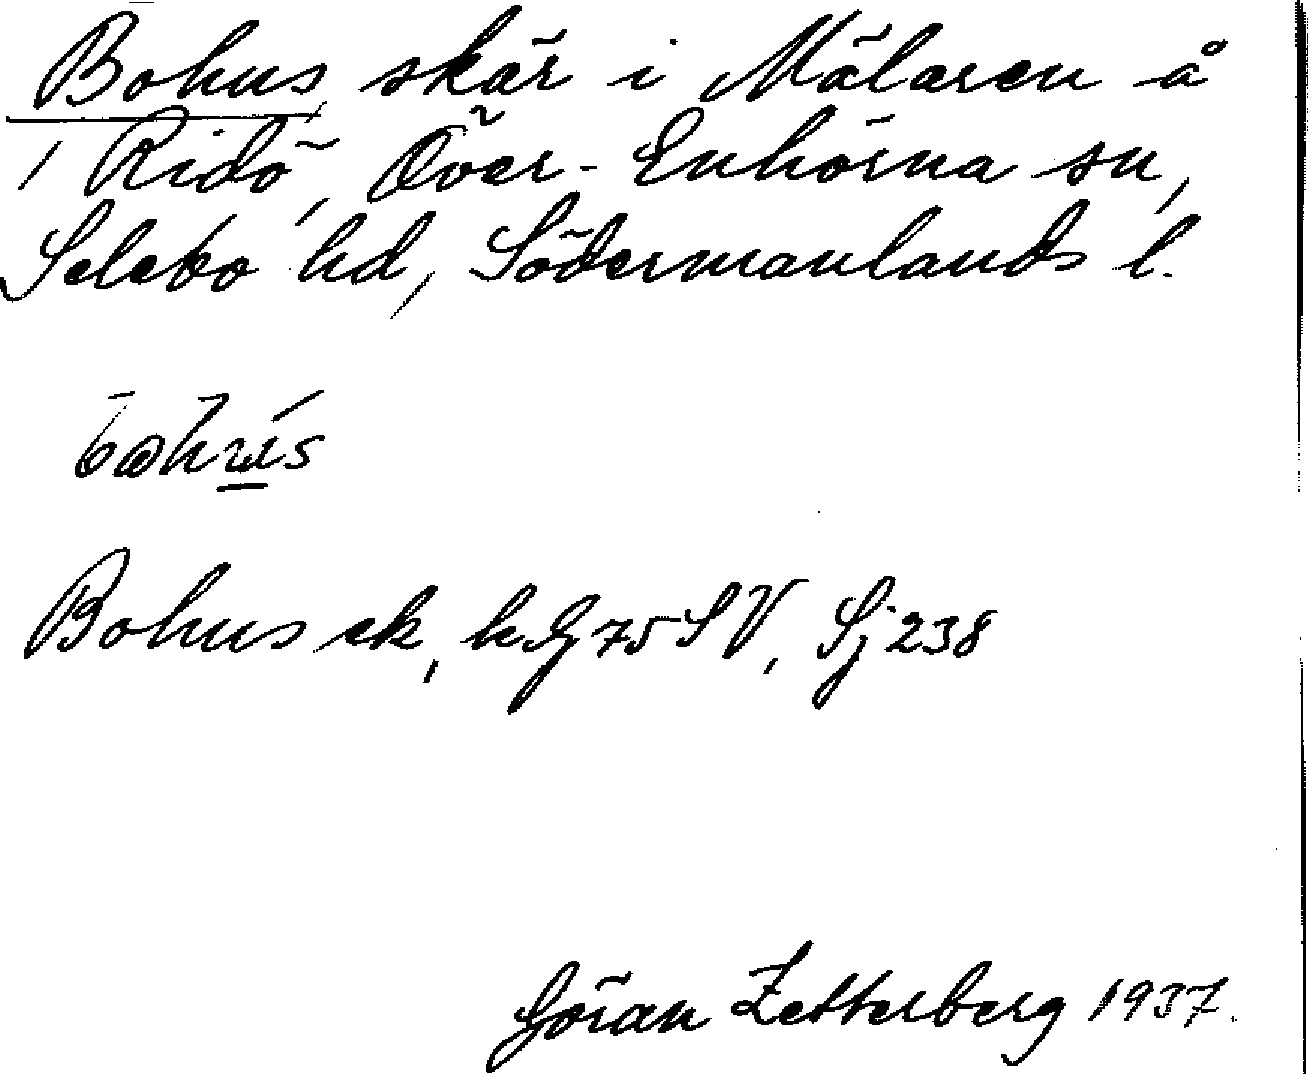 Bohus, skär i Mälaren å
1 Ridö, Över-Enhörna sn,
Selebo hd, Södermanlands l.
Bohus ek, kG 75 SV, Sj 238
Göran Zetterberg 1937.